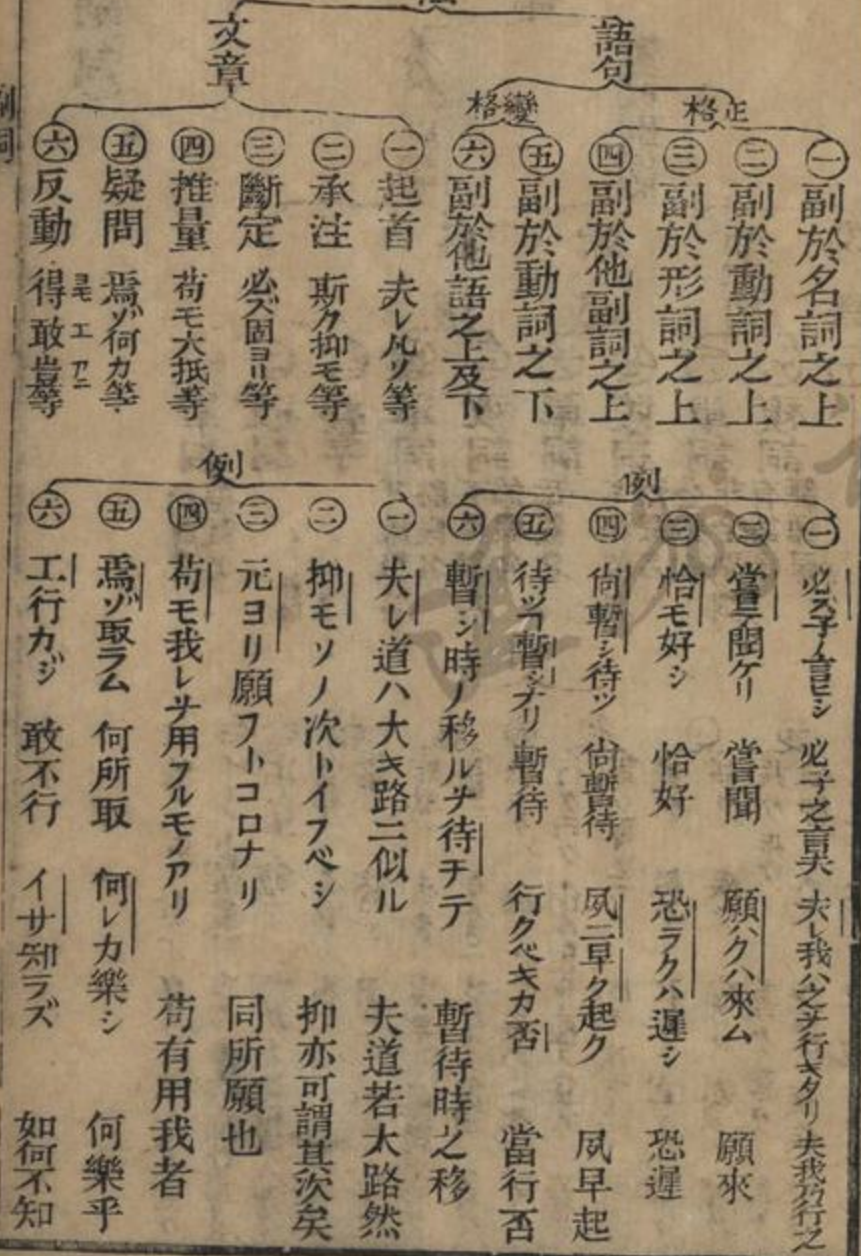 語句
正格
㊀副於名詞之上
㊁副於動詞之上
㊂副於形詞之上
㊃副於他副詞之上
變格
㊄副於動詞之下
㊅副於他語之上及下
文章
㊀起首 夫レ凡ソ等
㊁承注 斯ク抑モ等
㊂斷定 必ズ固ヨリ等
㊃推量 苟モ大抵等
㊄疑問 焉ゾ何カ等
㊅反動 得敢豈等
ヨモ エ アニ
副詞
例
㊀必ズ子ノ言ヒシ 必子之言夫 夫レ我ハ之ヲ行キタリ 夫我乃行之
㊂嘗テ聞ケリ 嘗聞 願ハクハ來ム 願來
㊂恰モ好シ 恰好 恐ラクハ遲シ 恐遲
㊃尙暫シ待ツ 尙暫待 夙ニ早ク起ク 夙早起
㊄待ツコ暫シナリ 暫待 行クベキカ否 當行否
㊅暫シ時ノ移ルヲ待チテ 暫待時之移
例
㊀夫レ道ハ大キ路ニ似ル 夫道若大路然
㊁抑モソノ次トイフベシ 抑亦可謂其次矣
㊂元ヨリ願フトコロナリ 同所願也
㊃苟モ我レヲ用フルモノアリ 苟有用我者
㊄焉ゾ取ラム 何所取 何レカ樂シ 何樂乎
㊅エ行カジ 敢不行 イサ知ラズ 如何不知